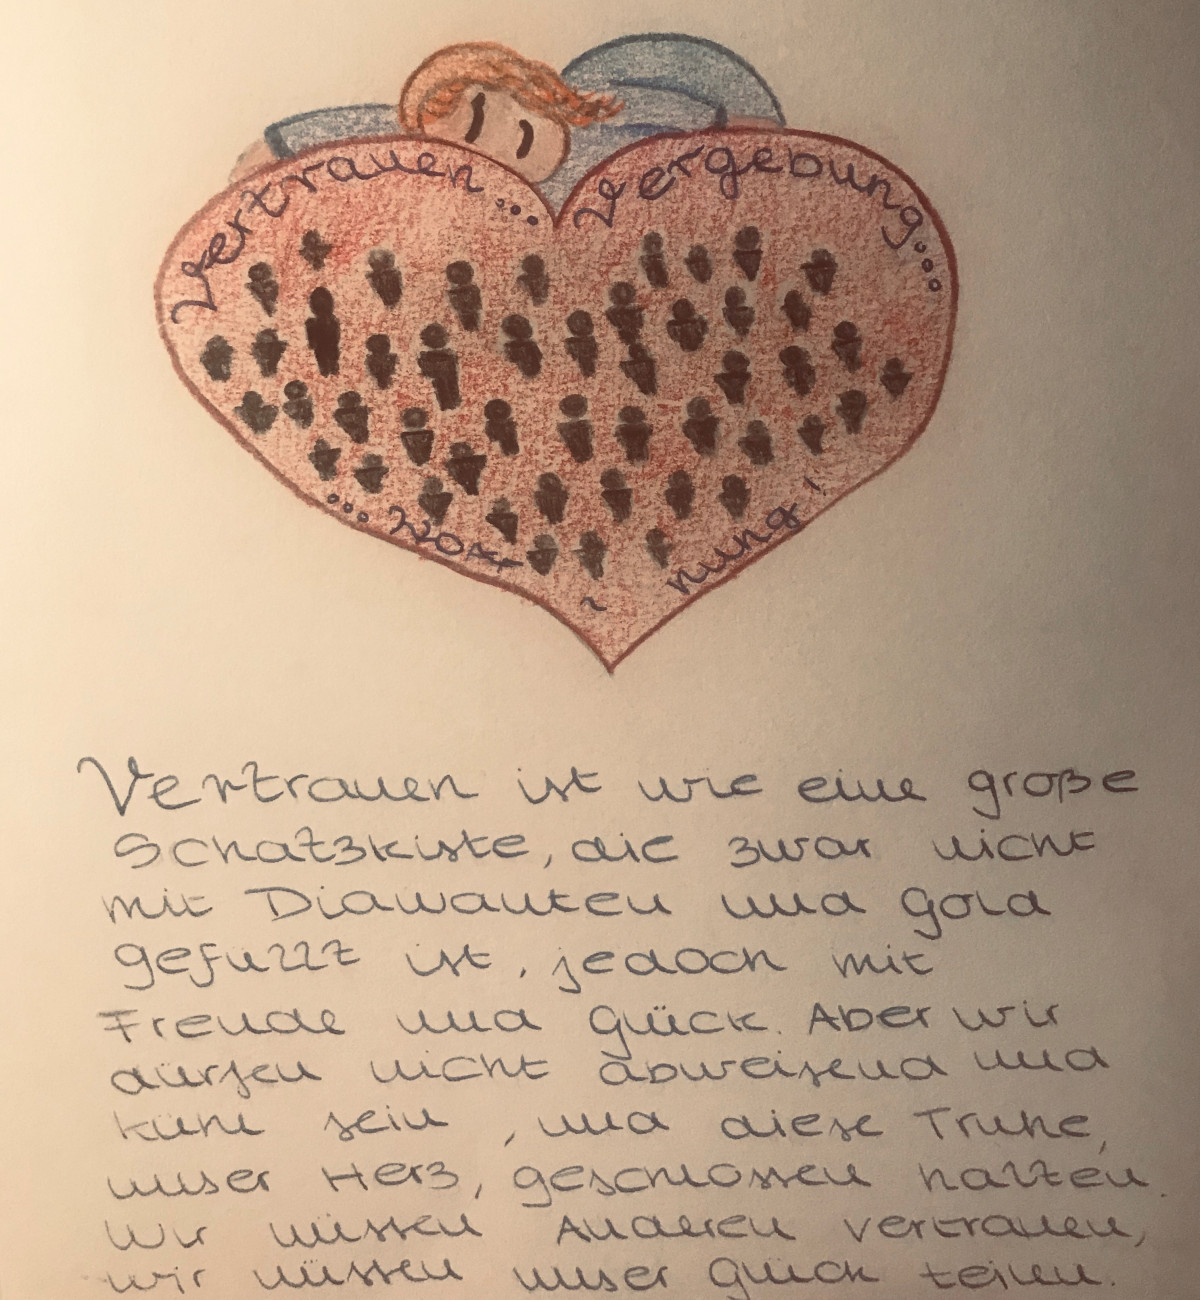 Vertrauen...
Vergebung...
...Hoff
~
nung!
Vertrauen ist wie eine große
Schatzkiste, die zwar nicht
mit Diamanten und Gold
gefüllt ist, jedoch mit
Freude und Glück. Aber wir
dürfen nicht abweisend und
kühl sein, und diese Truhe,
unser Herz, geschlossen halten.
Wir müssen Anderen vertrauen,
wir müssen unser Glück teilen.